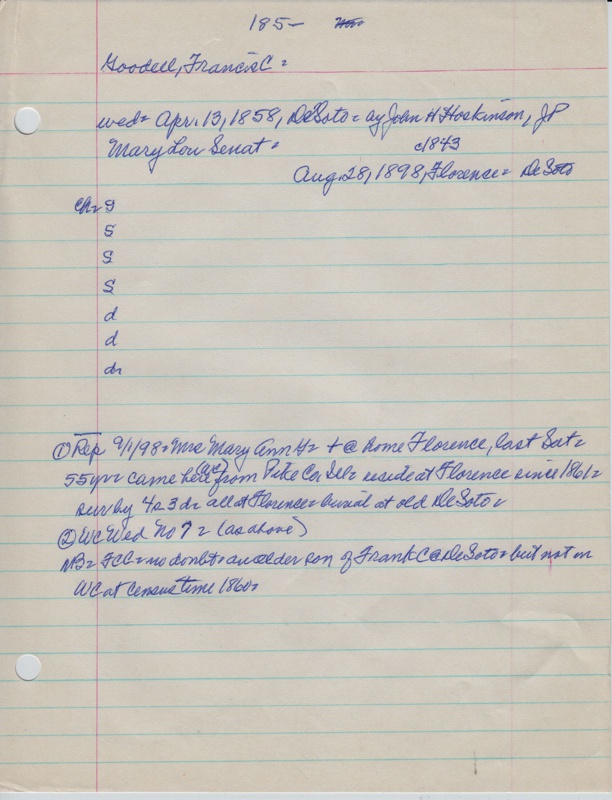 185-
Goodell, Francis C =
wed = Apr. 13, 1858, DeSoto = by John H Hoskinson, JP
Mary Lou Senat = c1843
Aug. 28, 1898, Florence = DeSoto
Ch = s
s
s
s
d
d
d
① Rep 9/1/98 = Mrs Mary Ann G = + @ home Florence, last Sat =
55 yr = came here (WC) from Pike Co Ill = reside at Florence since 1861 =
surv by 4s 3d = all at Florence = burial at old DeSoto =
② WC Wed No 7 = (as above)
NB = FCC = no doubt = an older son of Frank C @ DeSoto = but not in
WC at census time 1860 =